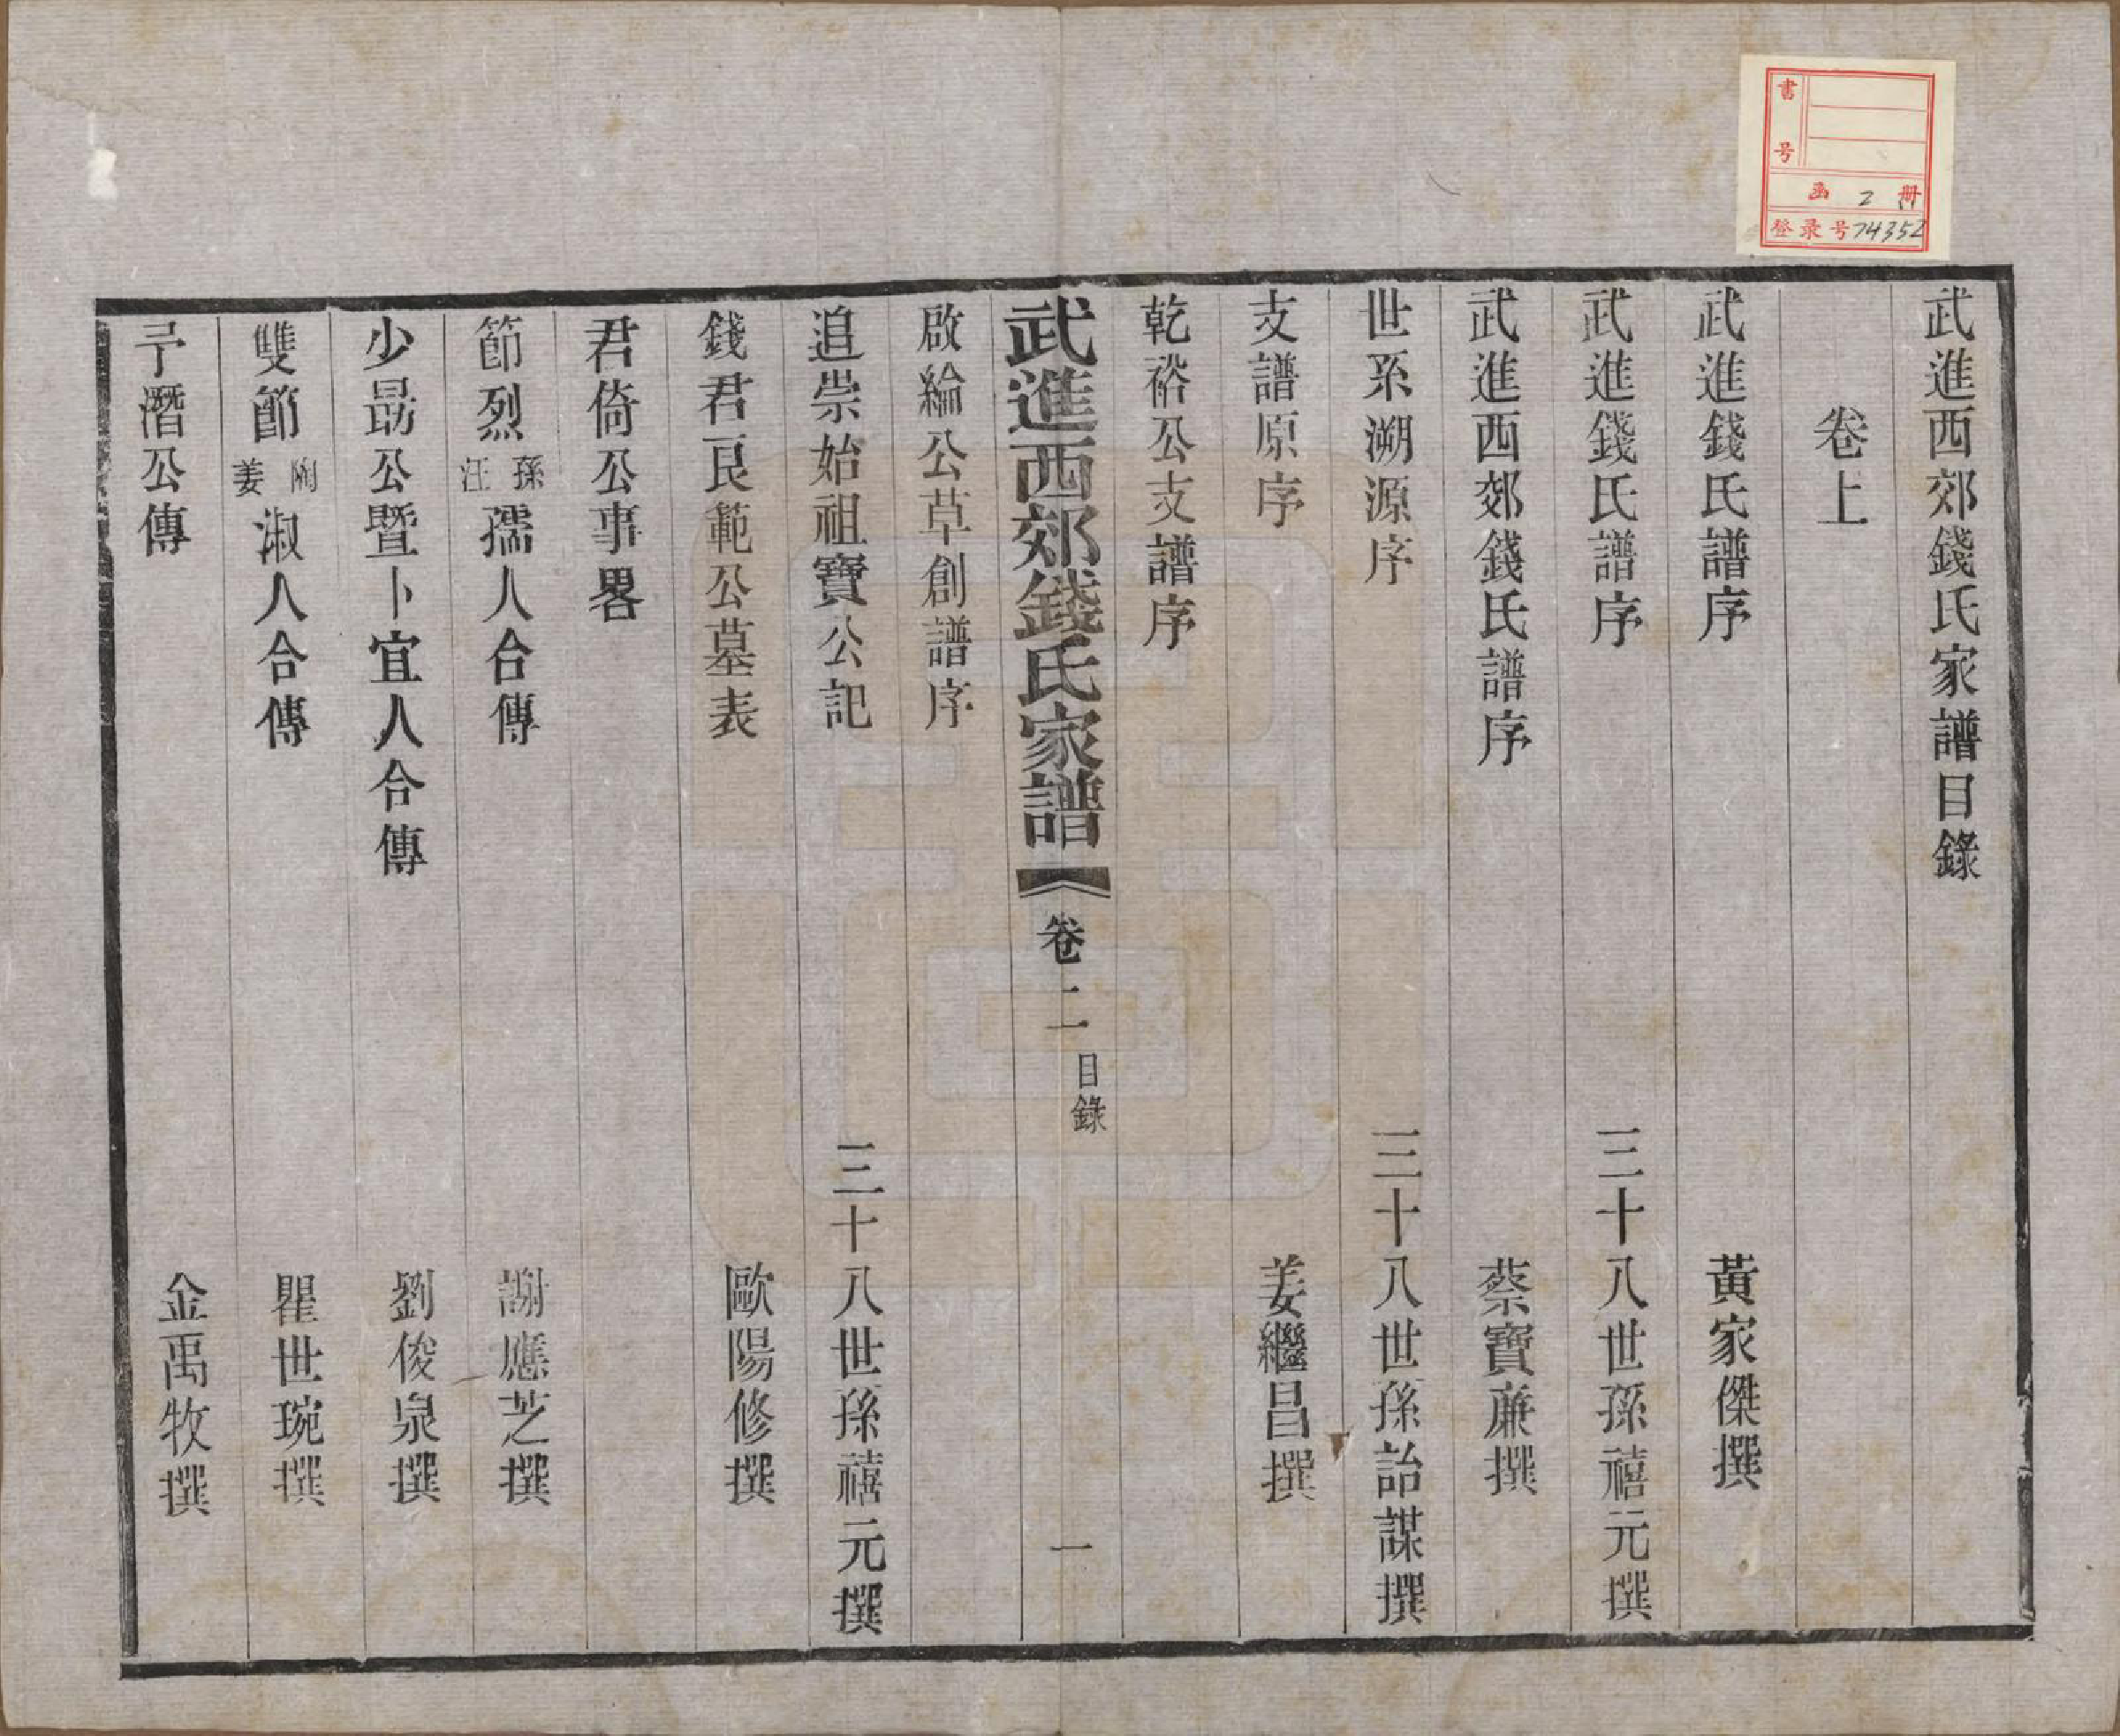 武進西郊錢氏家譜目錄
卷上
武進錢氏譜序 黃家傑撰
武進錢氏譜序 三十八世孫禧元撰
武進西郊錢氏譜序 蔡寶廉撰
世系溯源序 三十八世孫詒謀撰
支譜原序 姜繼昌撰
乾裕公支譜序
武進西郊錢氏家譜 卷二 目錄 一
啟綸公草創譜序
追崇始祖寶公記 三十八世孫禧元撰
錢君良範公墓表 歐陽修撰
君倚公事畧
節烈孫汪孺人合傳 謝應芝撰
少勗公暨卜宜人合傳 劉俊泉撰
雙節陶姜淑人合傳 瞿世琬撰
子潛公傳 金禹牧撰
書号
函 2 册
登录号74352